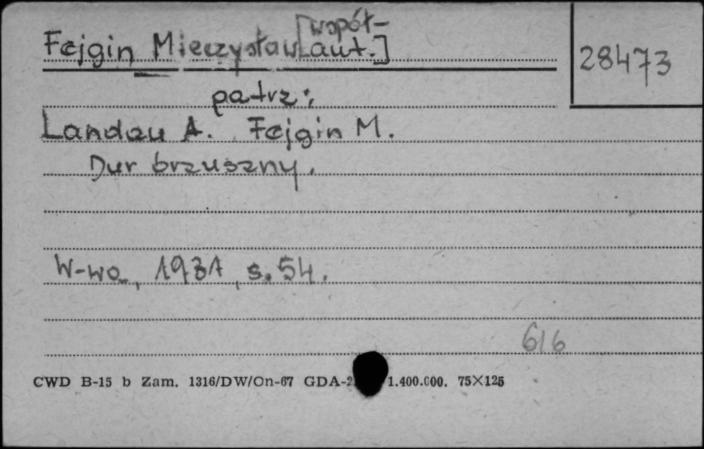 Fejgin Mieczysław [współ-
aut.]
28473
patrz:
Landau A. Fejgin M.
Dur brzuszny.
W-wa, 1931, s. 54.
616
CWD B-15 b Zam. 1316/DW/On-67 GDA-2 1.400.000. 75×125